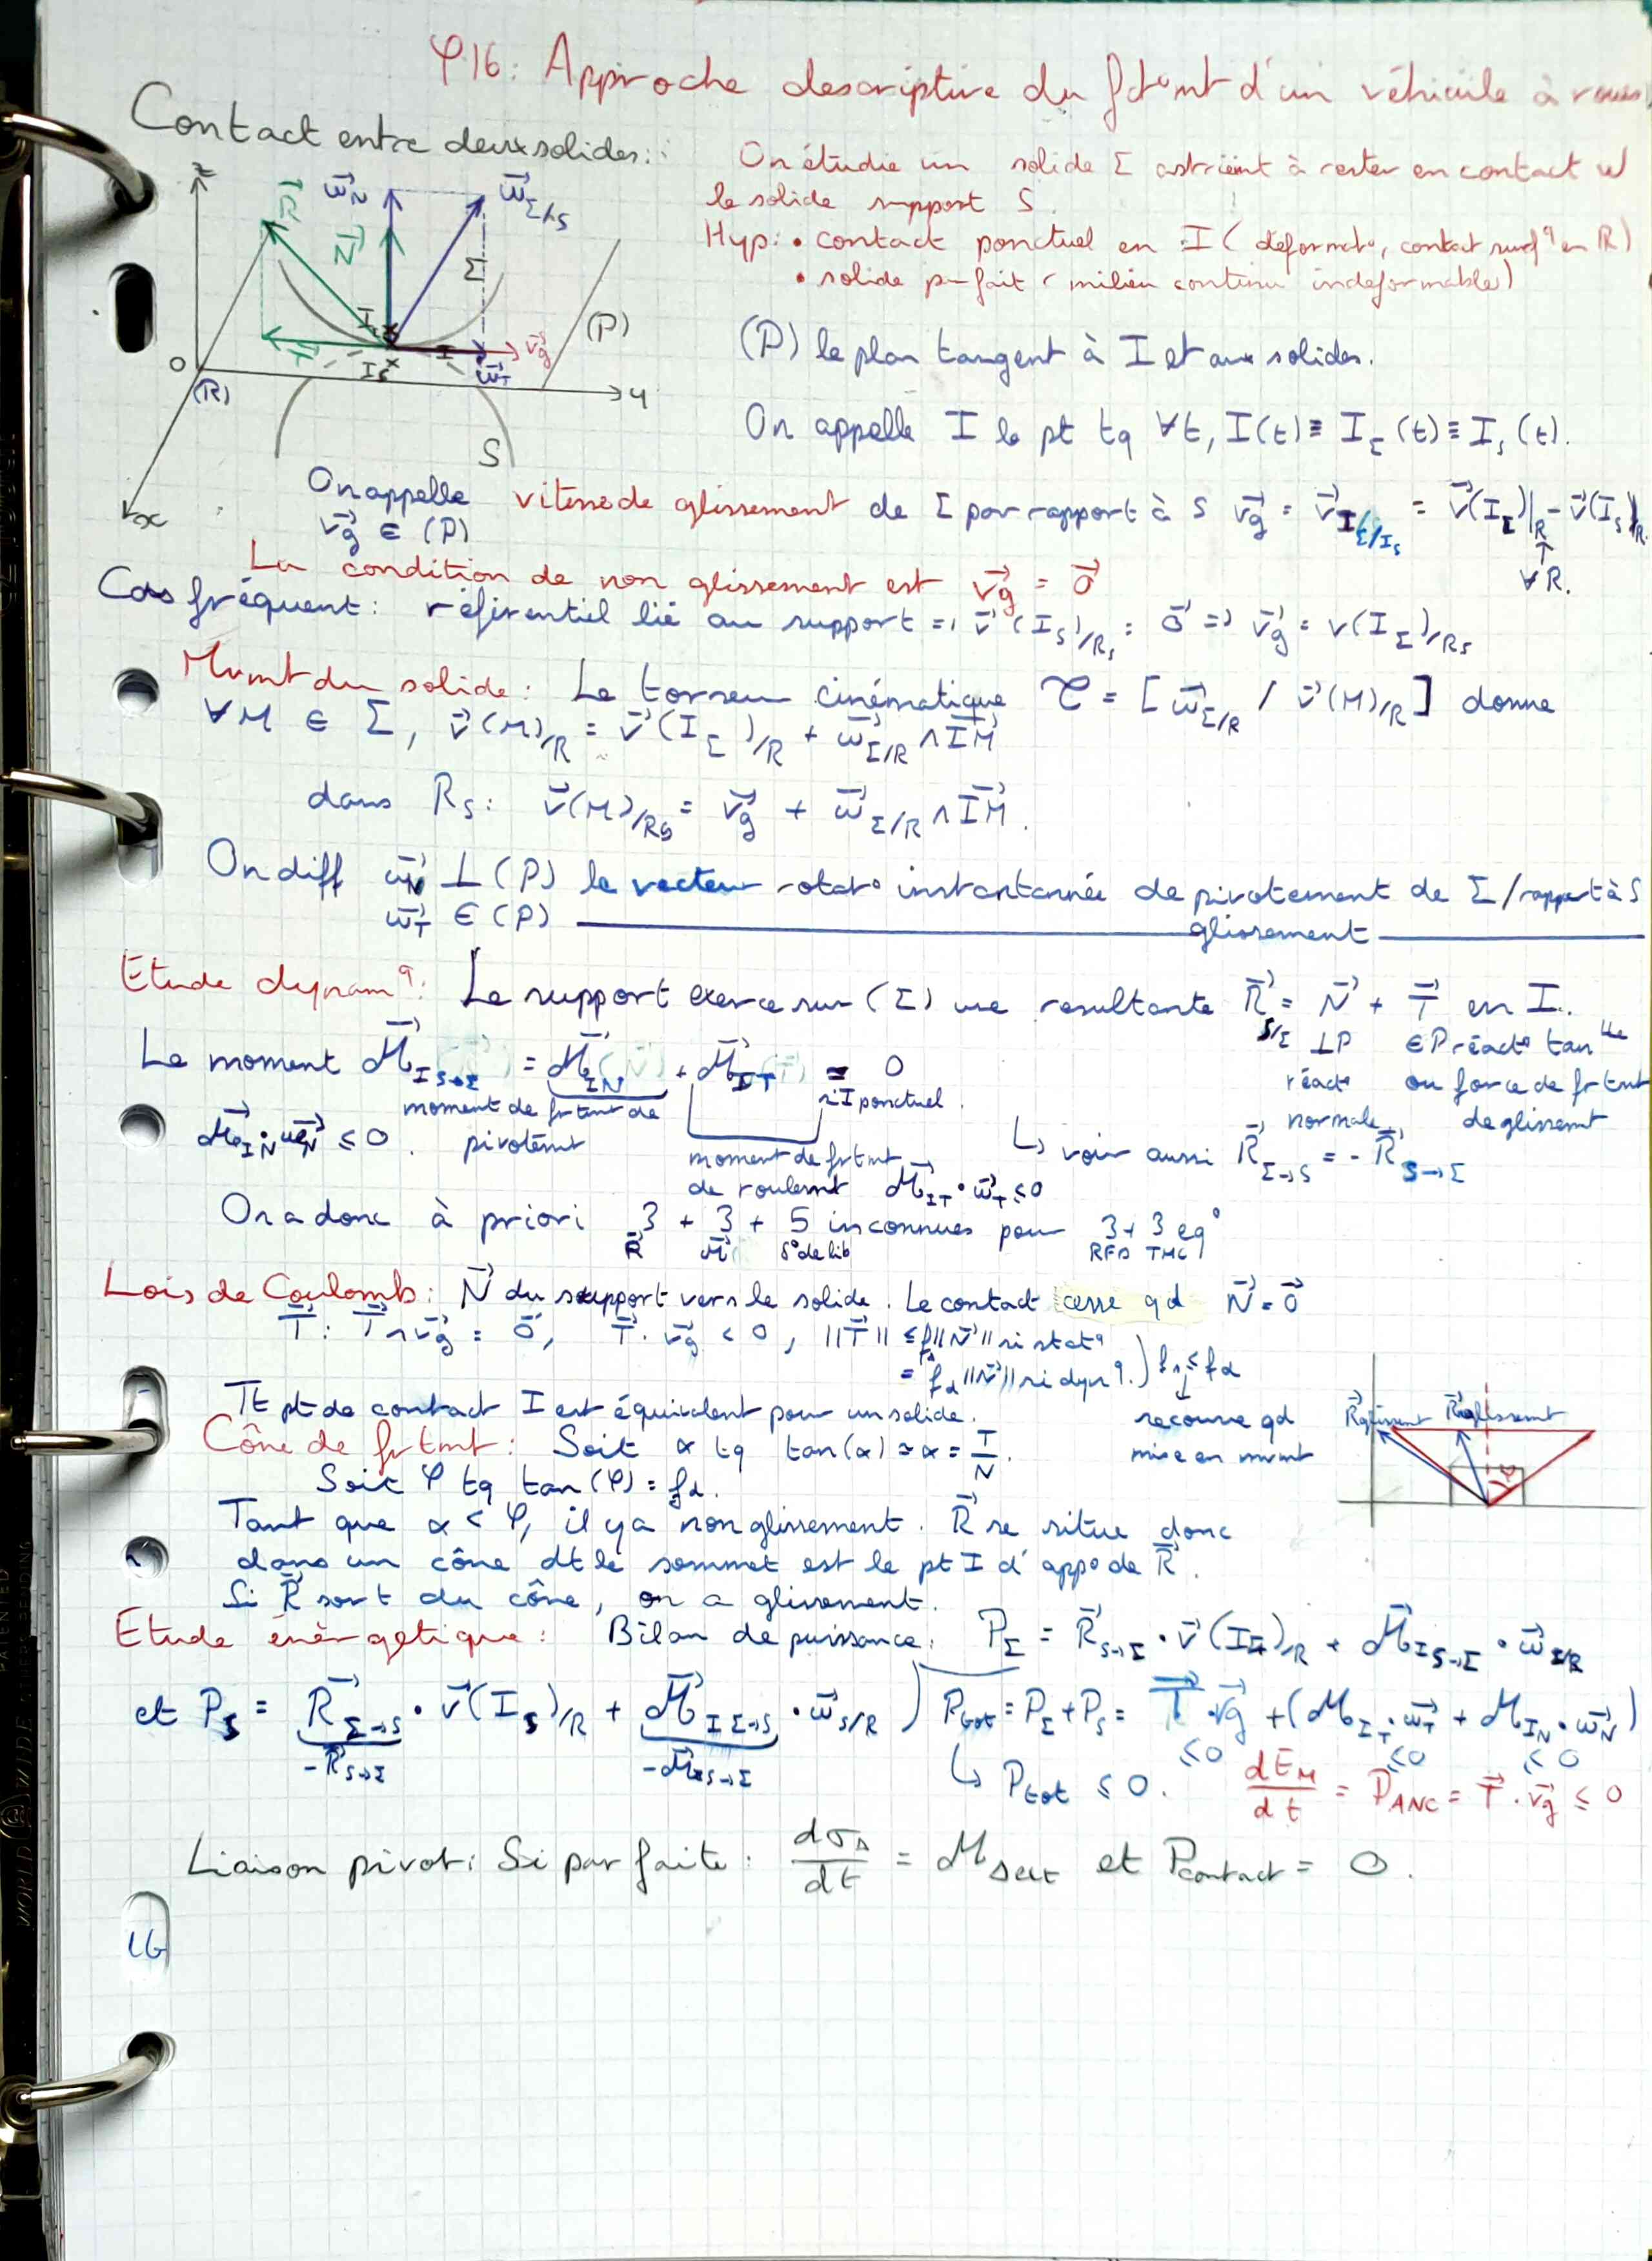 φ16: Approche descriptive du fct°mt d'un véhicule à roues
Contact entre deux solides:
On étudie un solide Σ astreint à rester en contact w/
le solide support S.
Hyp: • contact ponctuel en I (déformat°, contact surfq en R)
• solide parfait (milieu continu indéformable)
z
R⃗
ω⃗N
N⃗
ω⃗Σ/S
Σ
(P)
IΣ
I
T⃗
v⃗g
ω⃗T
IS
O
(R)
y
S
x
(P) le plan tangent à I et aux solides.
On appelle I le pt tq ∀t, I(t) ≡ IΣ(t) ≡ IS(t).
On appelle vitesse de glissement de Σ par rapport à S v⃗g = v⃗IΣ/IS = v⃗(IΣ)|R - v⃗(IS)|R
v⃗g ∈ (P)
↑
∀R.
La condition de non glissement est v⃗g = 0⃗
Cas fréquent: référentiel lié au support => v⃗(IS)/RS = 0⃗ => v⃗g = v(IΣ)/RS
Mvmt du solide: Le torseur cinématique τ = [ω⃗Σ/R / v⃗(M)/R] donne
∀M ∈ Σ, v⃗(M)/R = v⃗(IΣ)/R + ω⃗Σ/R ∧ IM⃗
dans RS: v⃗(M)/RS = v⃗g + ω⃗Σ/R ∧ IM⃗.
On diff ω⃗N ⊥ (P) le vecteur rotat° instantannée de pivotement de Σ / rapport à S
ω⃗T ∈ (P) ——— glissement ———
Etude dynamq: Le support exerce sur (Σ) une resultante R⃗S/Σ = N⃗ + T⃗ en I.
⊥P ∈P réact° tanlle
réact° ou force de frtmt
normale de glissemt
Le moment M⃗I S→Σ = M⃗IN + M⃗IT = 0
si I ponctuel.
moment de frtmt de
pivotemt
M⃗IN • ω⃗N ≤ 0.
moment de frtmt
de roulemt M⃗IT • ω⃗T ≤ 0
↳ voir aussi R⃗Σ→S = - R⃗S→Σ
On a donc à priori 3 + 3 + 5 inconnues pour 3 + 3 eq°
R⃗ M⃗ 5° de lib RFD TMC
Lois de Coulomb: N⃗ du support vers le solide. Le contact cesse qd N⃗ = 0⃗
T⃗: T⃗ ∧ v⃗g = 0⃗, T⃗ • v⃗g < 0, ||T⃗|| ≤ fs ||N⃗|| si statq
= fd ||N⃗|| si dynq.) fs ≤ fd
↓
Tt pt de contact I est équivalent pour un solide.
secousse qd
mise en mvmt
R⃗glissemt R⃗nonglissemt
φ
Cône de frtmt: Soit α tq tan(α) ≈ α = T/N.
Soit φ tq tan(φ) = fd.
Tant que α < φ, il y a non glissement. R⃗ se situe donc
dans un cône dt le sommet est le pt I d'app° de R⃗.
Si R⃗ sort du cône, on a glissement.
Etude énergetique: Bilan de puissance: PΣ = R⃗S→Σ • v⃗(IΣ)/R + M⃗I S→Σ • ω⃗Σ/R
et PS = R⃗Σ→S • v⃗(IS)/R + M⃗I Σ→S • ω⃗S/R ) Ptot = PΣ + PS = T⃗ • v⃗g + (MIT • ω⃗T + MIN • ω⃗N)
-R⃗S→Σ -M⃗I S→Σ ≤0 ≤0 ≤0
↳ Ptot ≤ 0. dEM/dt = PANC = T⃗ • v⃗g ≤ 0
Liaison pivot: Si parfaite: dσΔ/dt = MΔext et Pcontact = 0.
16
WORLD WIDE
PATENTED